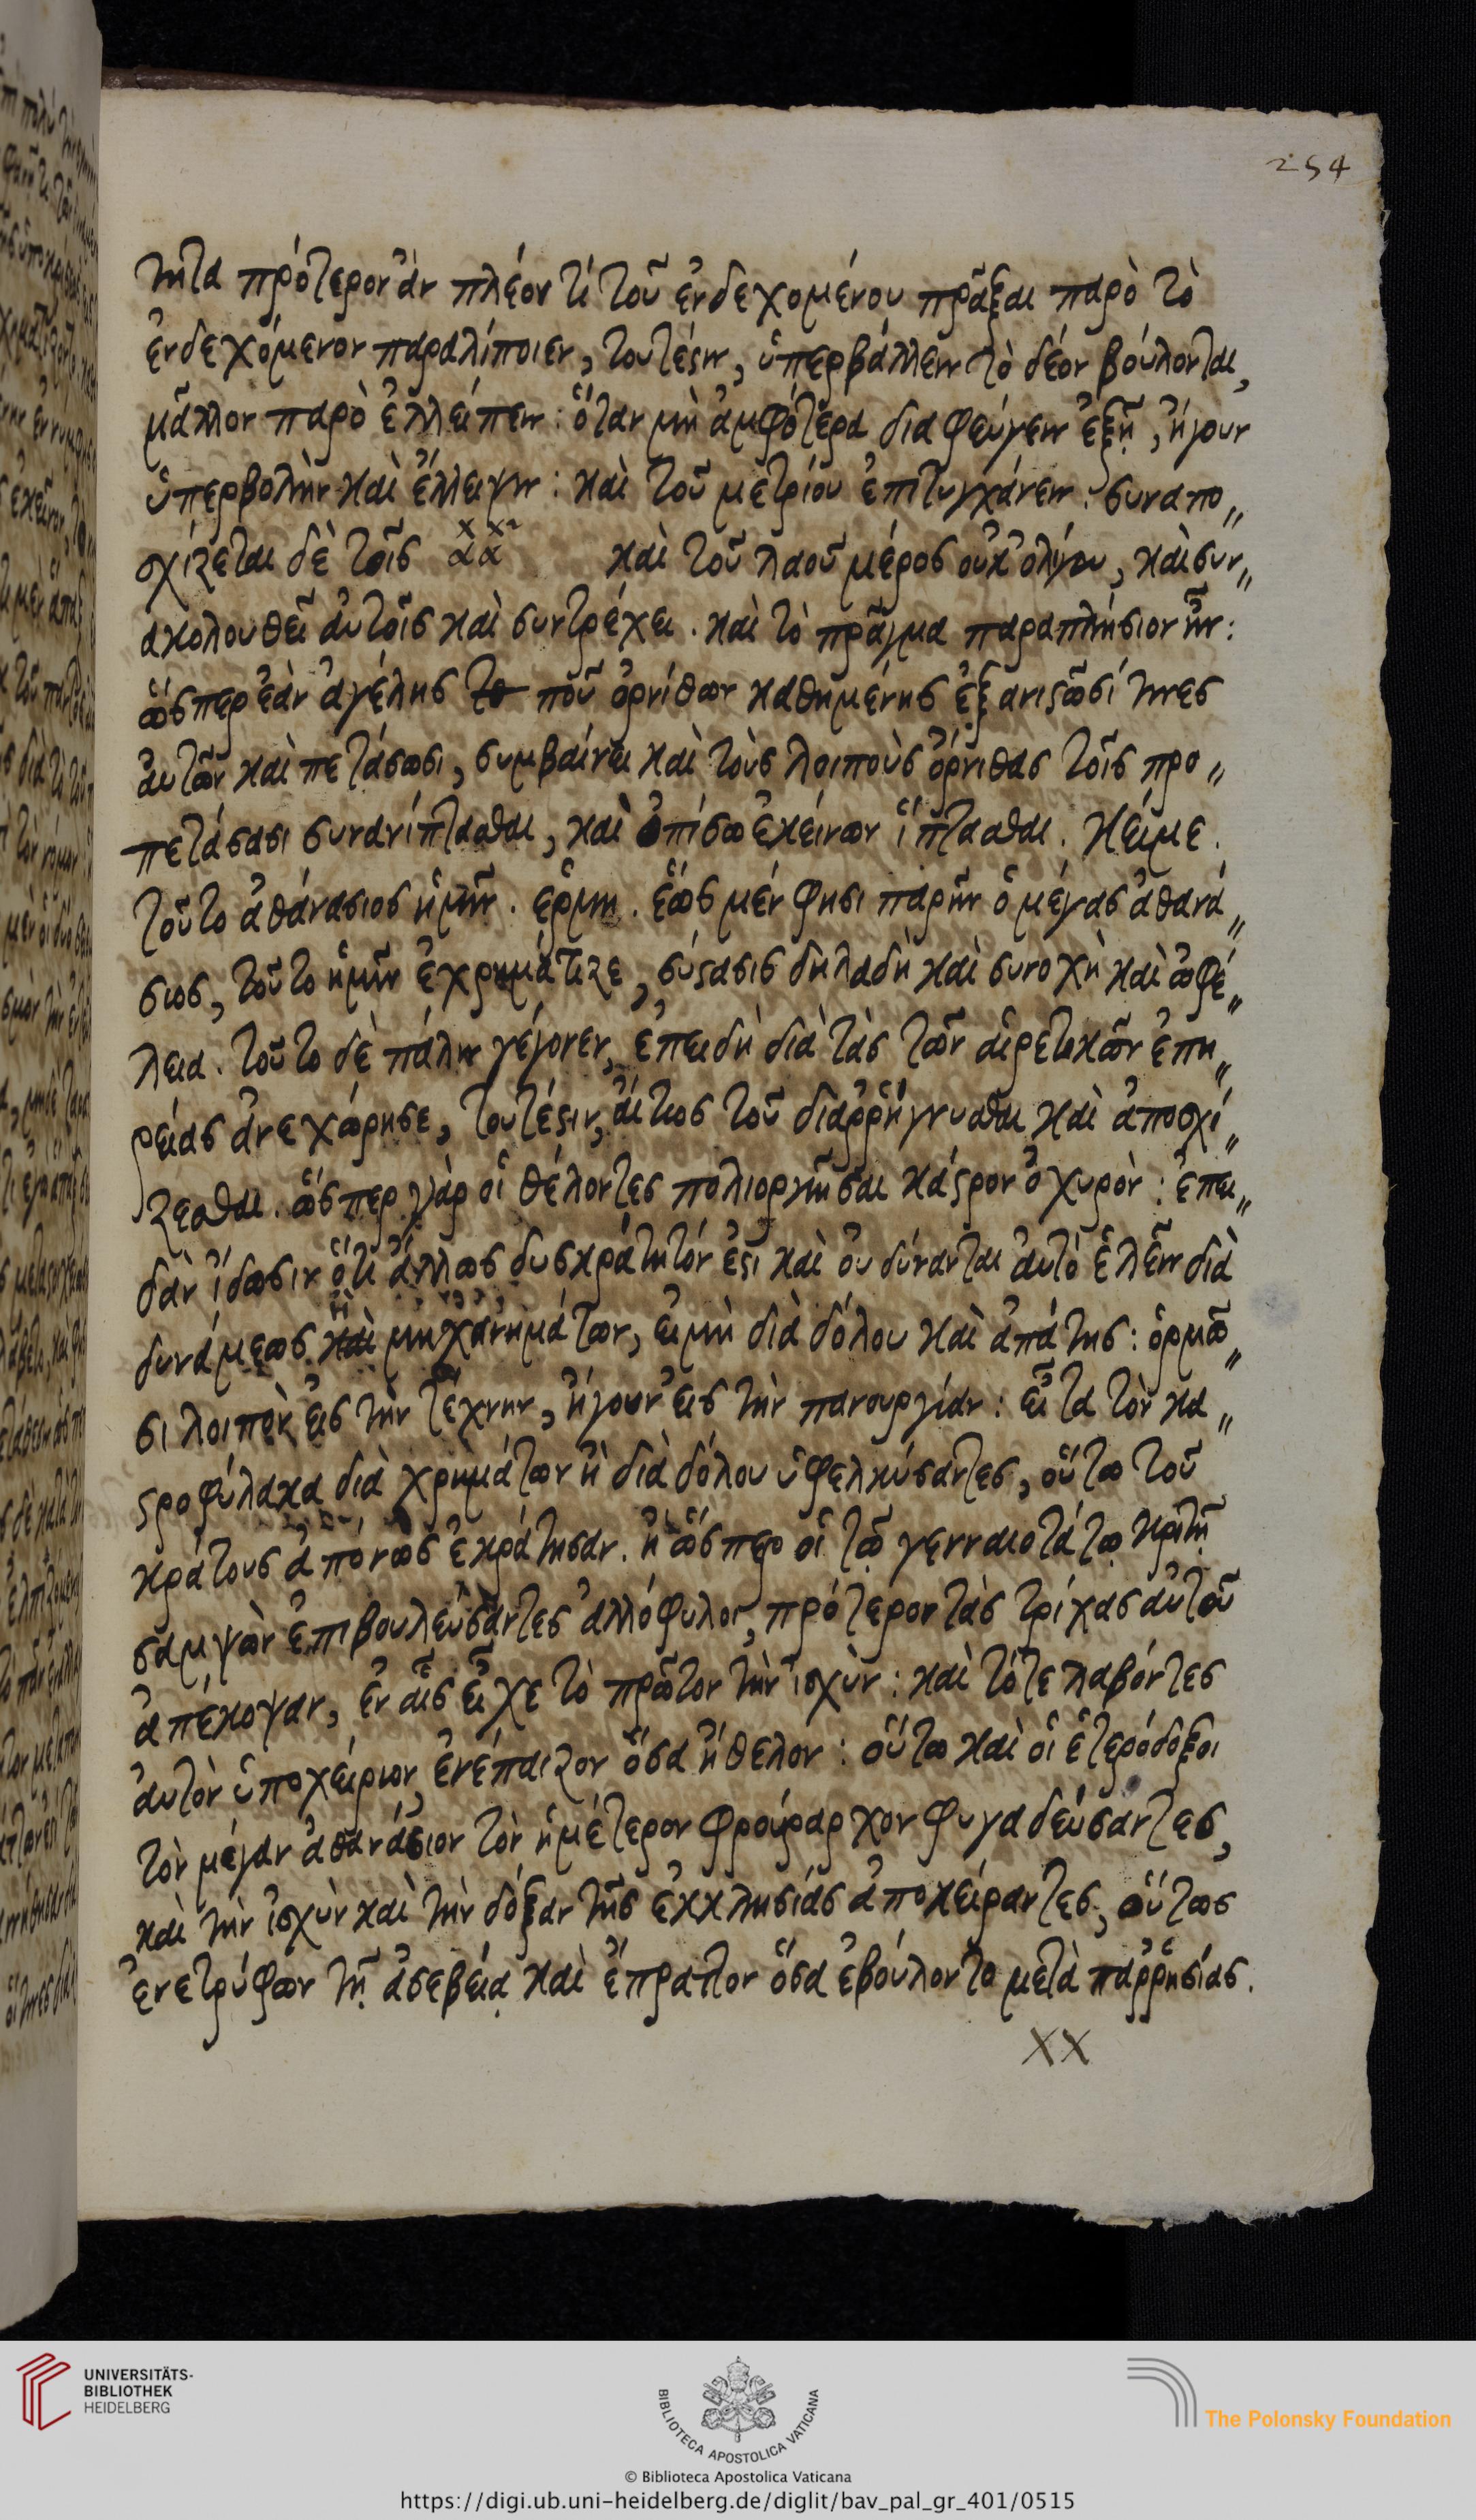 254
τητα πρότερον ἂν πλέον τί τοῦ ἐνδεχομένου πρᾶξαι παρὸ τὸ
ἐνδεχόμενον παραλίποιεν, τουτέστιν, ὑπερβάλλειν τὸ δέον βούλονται,
μᾶλλον παρὸ ἐλλείπειν: ὅταν μὴ ἀμφότερα διαφεύγειν ἐξῇ, ἤγουν
ὑπερβολὴν καὶ ἔλλειψιν: καὶ τοῦ μετρίου ἐπιτυγχάνειν: συναπο〃
σχίζεται δὲ τοῖς αα καὶ τοῦ λαοῦ μέρος οὐκ ὀλίγου, καὶ συν〃
ακολουθεῖ ἀυτοῖς καὶ συντρέχει. καὶ τὸ πρᾶγμα παραπλήσιον ἦν:
ὥσπερ ἐὰν ἀγέλης ποῦ ὀρνίθων καθημένης ἐξανιστῶσί τινες
ἀυτῶν καὶ πετάσωσι, συμβαίνει καὶ τοὺς λοιποὺς ὄρνιθας τοῖς προ〃
πετάσασι συνανίπτασθαι, καὶ ὀπίσω ἐκείνων ἵπτασθαι. κείμε.
τοῦτο ἀθάνασιος ἡμῖν. ἑρμη. ἕως μέν φησι παρῆν ὁ μέγας ἀθανά〃
σιος, τοῦτο ἡμῖν ἐχρημάτιζε, σύστασις δηλαδὴ καὶ συνοχὴ καὶ ὠφέ〃
λεια. τοῦτο δὲ πάλιν γέγονεν, ἐπειδὴ διὰ τὰς τῶν αἱρετικῶν ἐπη〃
ρείας ἀνεχώρησε, τουτέστιν, ἄιτιος τοῦ διαῤῥήγνυσθαι καὶ ἀποσχί〃
ζεσθαι. ὥσπερ γὰρ οἱ θέλοντες πολιορκῆσαι κάστρον ὀχυρὸν: ἐπει〃
δὰν ἴδωσιν ὅτι ἄλλως δυσκράτητόν ἐστι καὶ ὀυ δύνανται ἀυτὸ ἑλεῖν διὰ
δυνάμεως ἢ μηχανημάτων, ἐι μὴ διὰ δόλου καὶ ἀπάτης: ὁρμῶ〃
σι λοιπὸν ἐις τὴν τέχνην, ἤγουν ἐις τὴν πανουργίαν: εἶτα τὸν κα〃
στροφύλακα διὰ χρημάτων ἢ διὰ δόλου ὑφελκύσαντες, οὕτω τοῦ
κράτους ἀπόνως ἐκράτησαν. ἢ ὥσπερ οἱ τῷ γενναιοτάτῳ κριτῇ
σαμψὼν ἐπιβουλεύσαντες ἀλλόφυλοι, πρότερον τὰς τρίχας ἀυτοῦ
ἀπέκοψαν, ἐν αἷς εἶχε τὸ πρῶτον τὴν ἰσχὺν: καὶ τότε λαβόντες
ἀυτὸν ὑποχείριον, ἐνέπαιζον ὅσα ἤθελον: οὕτω καὶ οἱ ἑτερόδοξοι
τὸν μέγαν ἀθανάσιον τὸν ἡμέτερον φρούραρχον φυγαδεύσαντες,
καὶ τὴν ἰσχὺν καὶ τὴν δόξαν τῆς ἐκκλησίας ἀποκείραντες, οὕτως
ἐνετρύφων τῇ ἀσεβείᾳ καὶ ἔπραττον ὅσα ἐβούλοντο μετὰ παῤῥησίας.
XX
UNIVERSITÄTS-
BIBLIOTHEK
HEIDELBERG
BIBLIOTECA APOSTOLICA VATICANA
The Polonsky Foundation
© Biblioteca Apostolica Vaticana
https://digi.ub.uni-heidelberg.de/diglit/bav_pal_gr_401/0515